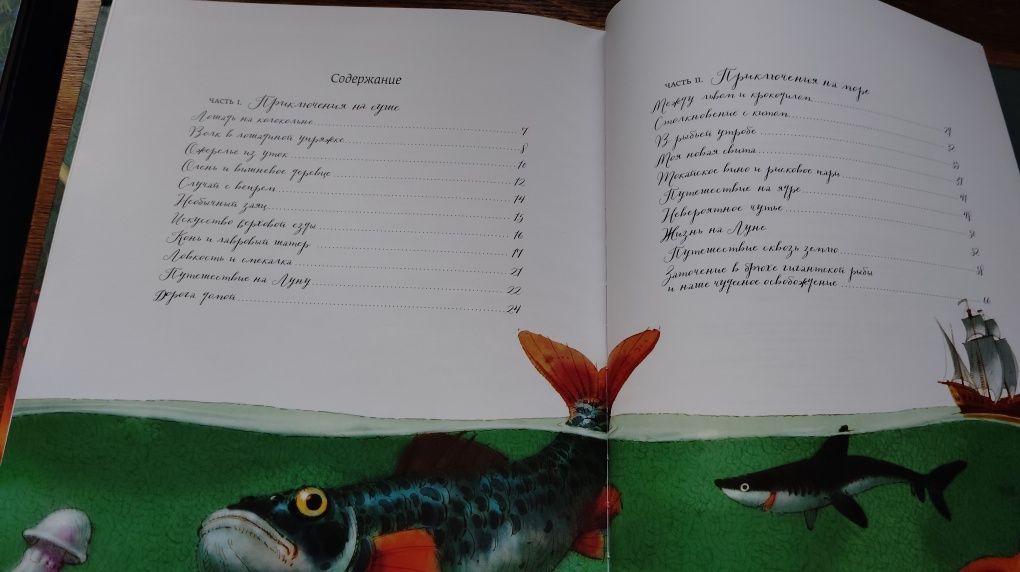 Содержание
ЧАСТЬ I. Приключения на суше
Лошадь на колокольне 7
Волк в лошадиной упряжке 8
Ожерелье из уток 10
Олень и вишневое деревце 12
Случай с вепрем 14
Необычный заяц 15
Искусство верховой езды 16
Конь и лавровый шатер 19
Ловкость и смекалка 21
Путешествие на Луну 22
Дорога домой 24
ЧАСТЬ II. Приключения на море
Между львом и крокодилом
Столкновение с китом
В рыбьей утробе
Моя новая свита
Токайское вино и рисковое пари
Путешествие на ядре
Невероятное чутье
Жизнь на Луне
Путешествие сквозь землю
Заточение в брюхе гигантской рыбы
и наше чудесное освобождение